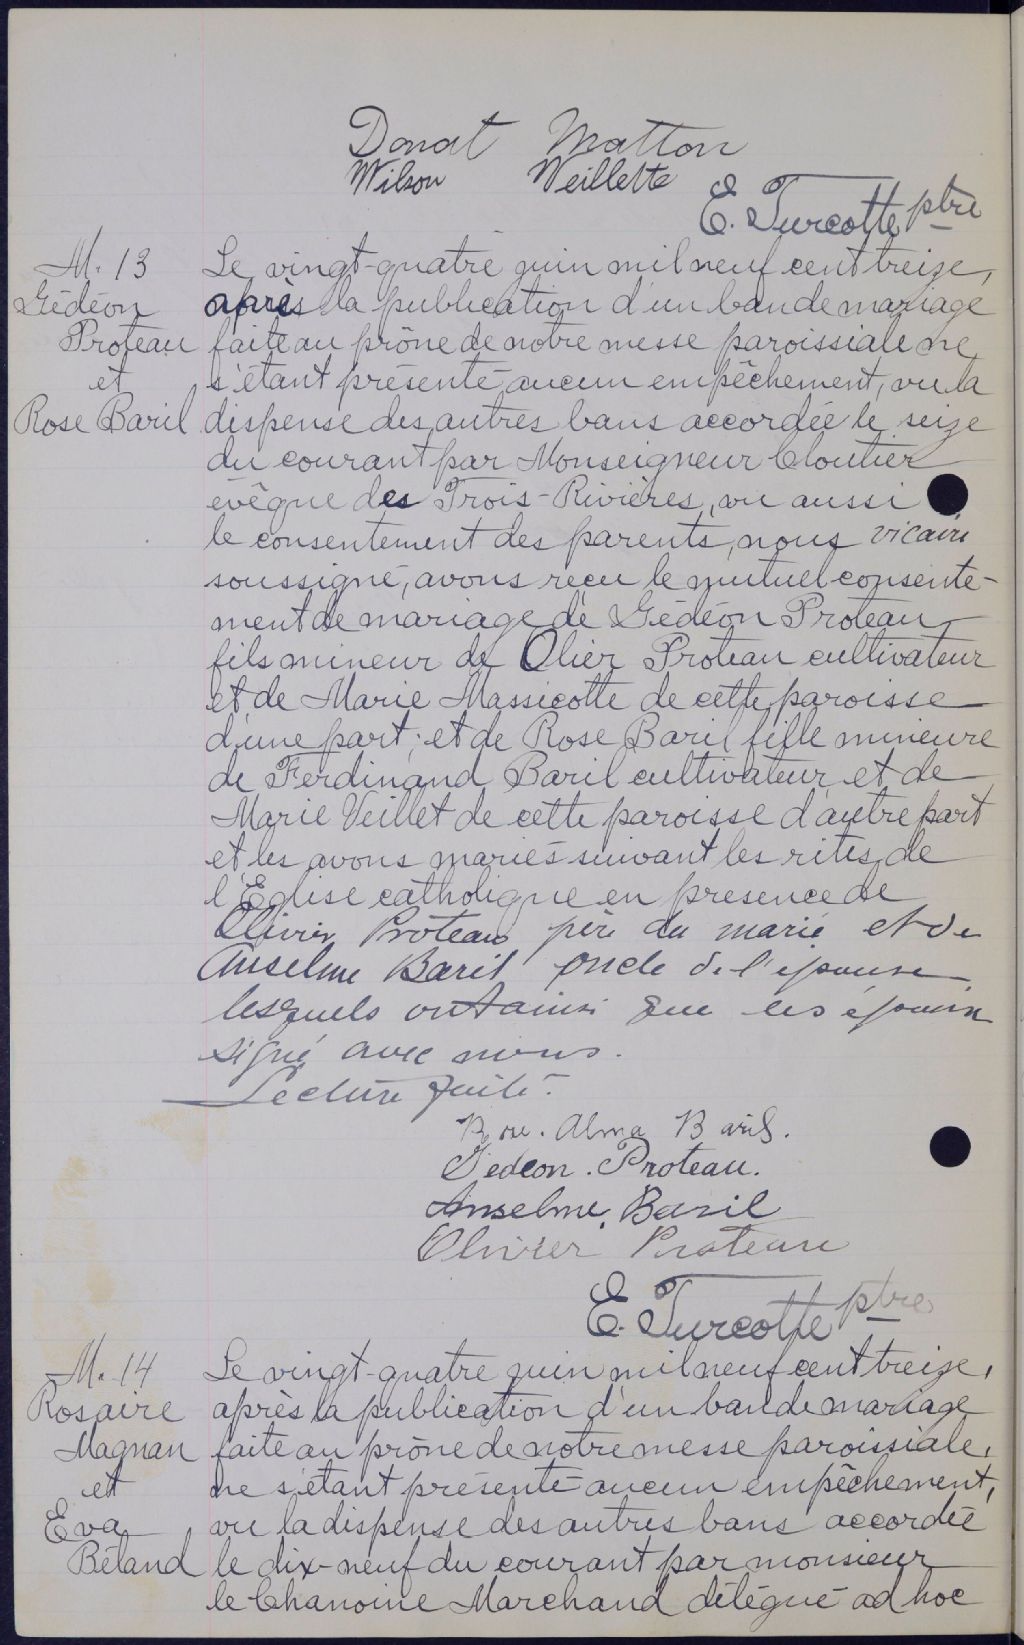 Donat Matton
Wilson Veillette
E. Turcotte ptre
M. 13
Gédéon
Proteau
et
Rose Baril
Le vingt-quatre juin mil neuf cent treize,
après la publication d'un ban de mariage
faite au prône de notre messe paroissiale ne
s'étant présenté aucun empêchement, vu la
dispense des autres bans accordée le seize
du courant par Monseigneur Cloutier
évêque des Trois-Rivières, vu aussi
le consentement des parents, nous vicaire
soussigné, avons reçu le mutuel consente-
ment de mariage de Gédéon Proteau
fils mineur de Olier Proteau cultivateur
et de Marie Massicotte de cette paroisse
d'une part; et de Rose Baril fille mineure
de Ferdinand Baril cultivateur et de
Marie Veillet de cette paroisse d'autre part
et les avons mariés suivant les rites de
l'Eglise catholique en présence de
Olivier Proteau père du marié et de
Anselme Baril oncle de l'épouse
lesquels ont ainsi que les époux
signé avec nous.
Lecture faite.
Alma Baril.
Gedeon. Proteau.
Anselme Baril
Olivier Proteau
E. Turcotte ptre
M. 14
Rosaire
Magnan
et
Eva
Béland
Le vingt-quatre juin mil neuf cent treize,
après la publication d'un ban de mariage
faite au prône de notre messe paroissiale,
ne s'étant présenté aucun empêchement,
vu la dispense des autres bans accordée
le dix-neuf du courant par monsieur
le Chanoine Marchand délégué ad hoc